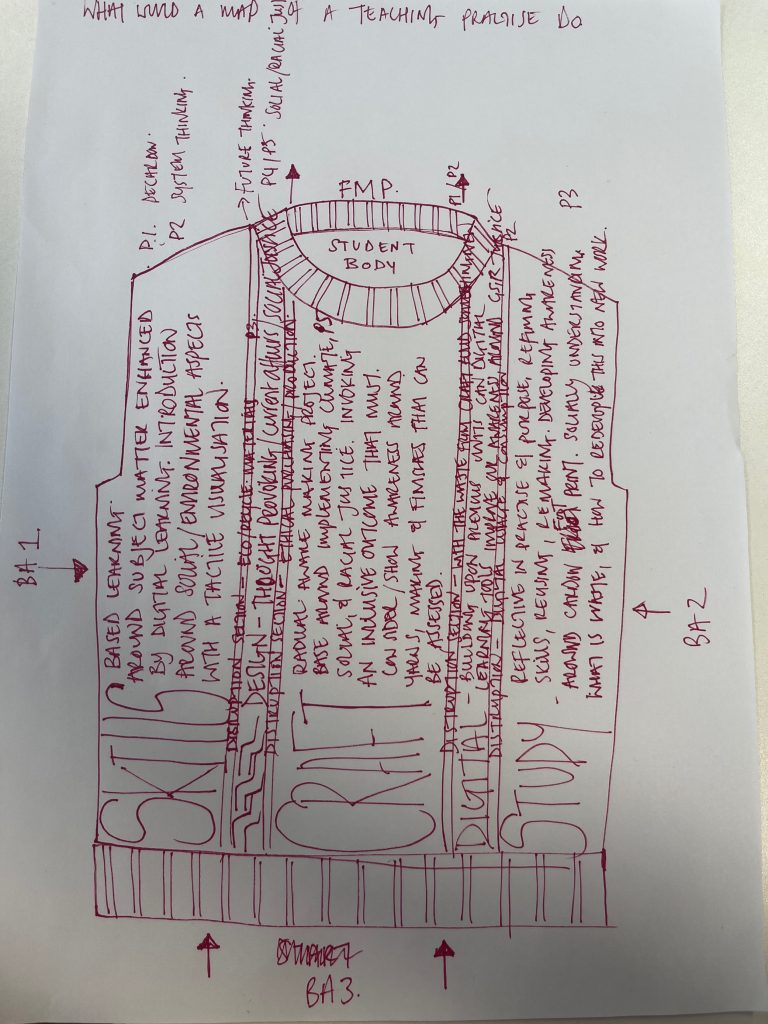 WHAT WOULD A MAP OF A TEACHING PRACTISE DO
P.1. DECARBON.
P2 SYSTEM THINKING.
→ FUTURE THINKING.
P4/P5. SOCIAL/RACIAL JUS
FMP.
P1/P2
STUDENT
BODY
BA1.
SKILLS
BASED LEARNING
AROUND SUBJECT MATTER ENHANCED
BY DIGITAL LEARNING. INTRODUCTION
AROUND SOCIAL/ENVIRONMENTAL ASPECTS
WITH A TACTILE VISUALISATION.
DISRUPTION SECTION - ECO/DEVICE METERING P3.
DESIGN - THOUGHT PROVOKING/CURRENT AFFAIRS/SOCIAL JUSTICE
DISTRUPTION SECTION - ETHICAL PRODUCTION.
CRAFT
RADICAL AWARE MAKING PROJECT.
BASE AROUND IMPLEMENTING CLIMATE, P5
SOCIAL, & RACIAL JUSTICE. INVOKING
AN INCLUSIVE OUTCOME THAT MUST.
CONSIDER/SHOW AWARENESS AROUND
YARNS, MAKING & FINISHES THAT CAN
BE ASSESSED.
DISTRUPTION SECTION - WITH THE WASTE FROM CRAFT
DIGITAL - BUILDING UPON PREVIOUS UNITS CAN DIGITAL
LEARNING TOOLS IMPROVE OUR AWARENESS AROUND CSJR JUSTICE
DISTRUPTION - DIGITAL WASTE & CONSUMPTION P2
STUDY -
REFLECTIVE IN PRACTISE & PURPOSE, REFINING
SKILLS, REUSING, REMAKING. DEVELOPING AWARENESS
AROUND CARBON FOOT PRINT. SOCIALLY UNDERSTANDING P3
WHAT IS WASTE, & HOW TO REDEVELOPE THIS INTO NEW WORK.
BA2
BA3.